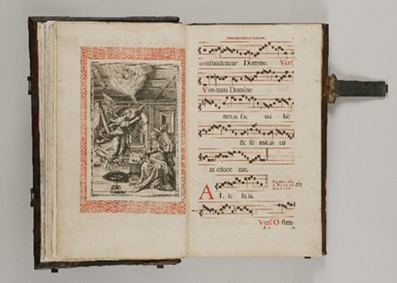 confundentur Domine. Vers.
Vias tuas Domine
notas fac mi hi
& semitas tu
as edoce me.
Al le luia.
Vers. Osten-